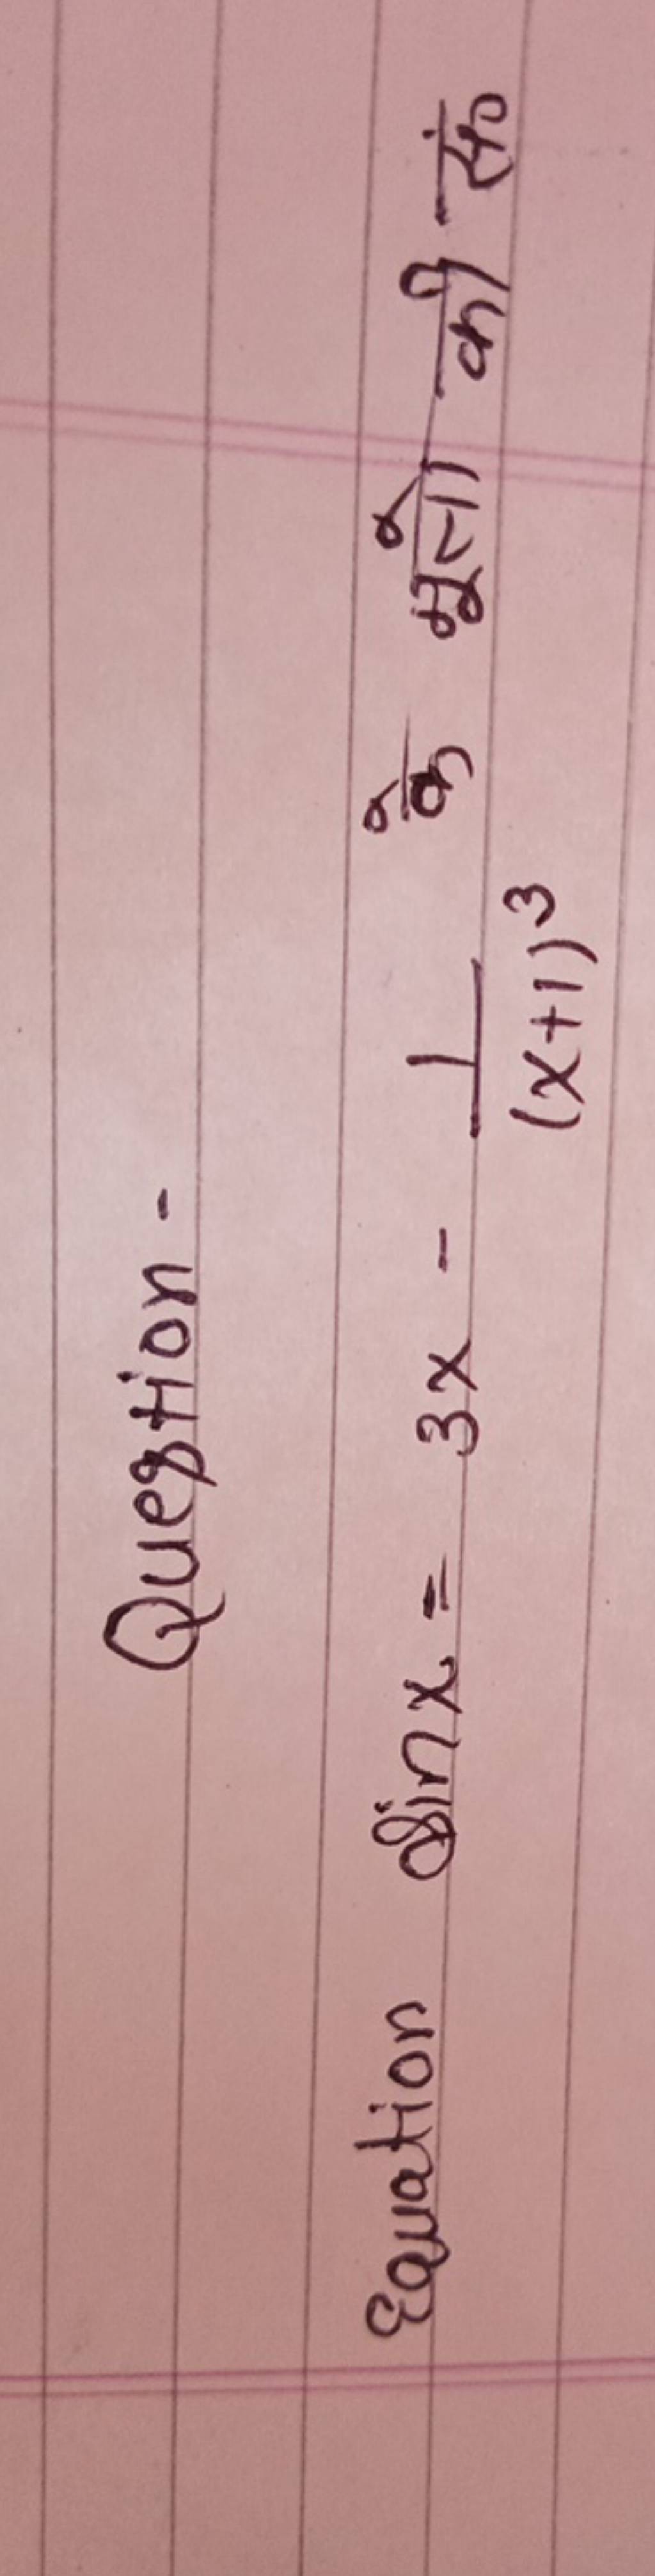 Question -
Equation sin x = 3x - 1/(x+1)³ के मूलो की सं०